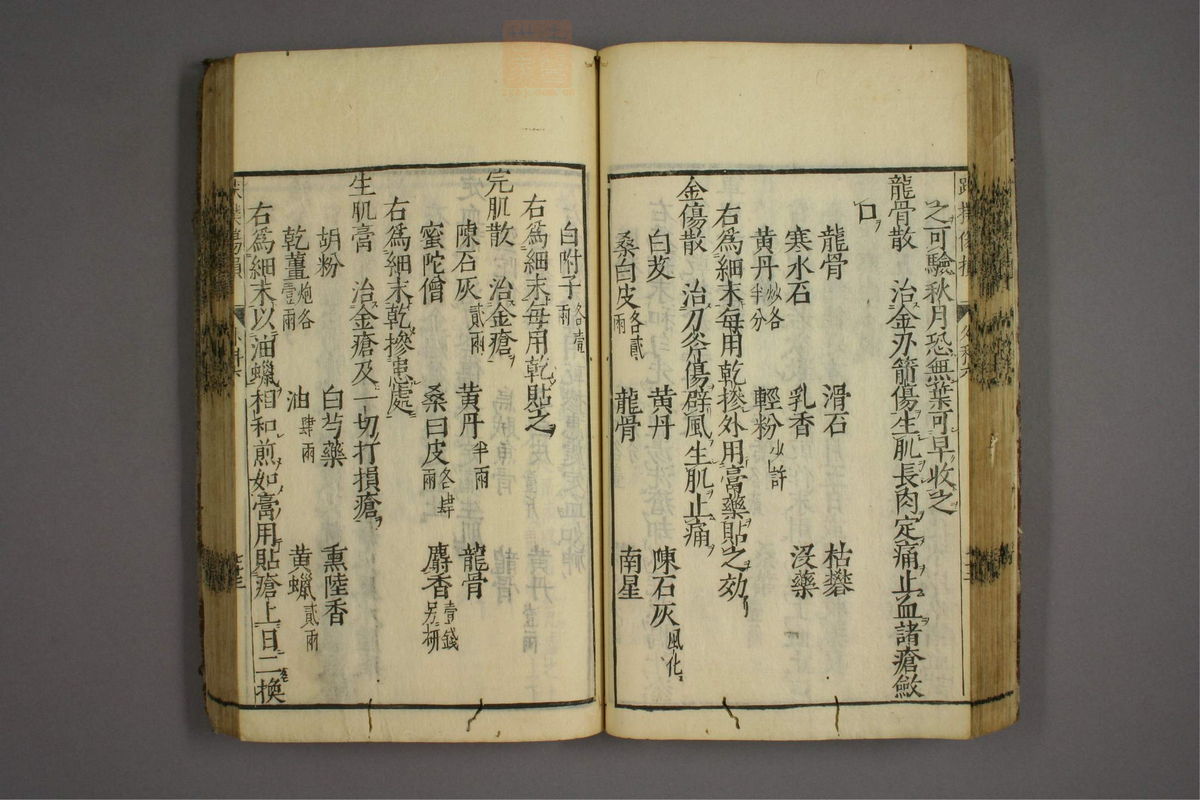 之可驗秋月恐無葉可早收之
龍骨散 治金刃箭傷生肌長肉定痛止血諸瘡斂
口
龍骨 滑石 枯礬
寒水石 乳香 沒藥
黄丹炒各半分 輕粉少許
右爲細末每用乾摻外用膏藥貼之効
金傷散 治刀斧傷辟風生肌止痛
白芨 黄丹 陳石灰風化
桑白皮各貳兩 龍骨 南星
白附子各壹兩
右爲細末每用乾貼之
完肌散 治金瘡
陳石灰貳兩 黄丹半兩 龍骨
蜜陀僧 桑白皮各肆兩 麝香壹錢另研
右爲細末乾摻患處
生肌膏 治金瘡及一切打損瘡
胡粉 白芍藥 熏陸香
乾薑炮各壹兩 油肆兩 黄蠟貳兩
右爲細末以油蠟相和煎如膏用貼瘡上日二換